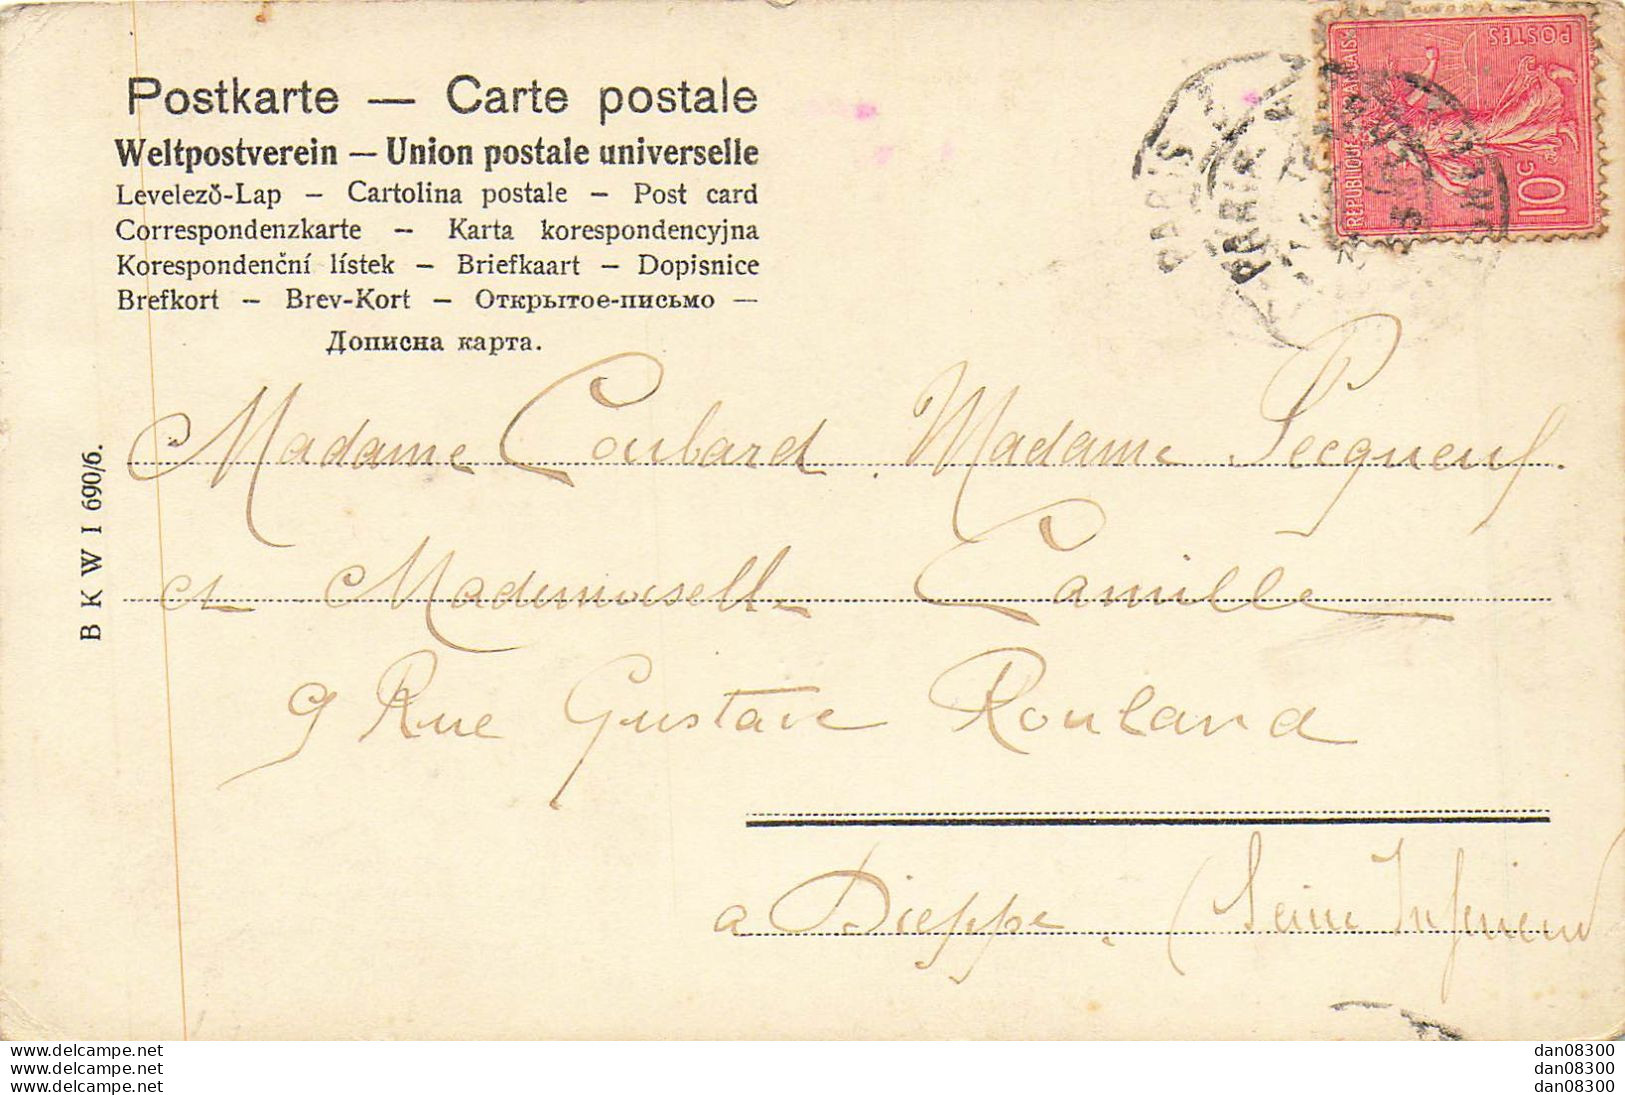 Postkarte — Carte postale
Weltpostverein — Union postale universelle
Levelező-Lap – Cartolina postale – Post card
Correspondenzkarte – Karta korespondencyjna
Korespondenční lístek – Briefkaart – Dopisnice
Brefkort – Brev-Kort – Открытое-письмо —
Дописна карта.
POSTES
REPUBLIQUE FRANÇAISE
10c
PARIS
PARIS
B K W I 690/6.
Madame Coubard. Madame Pecqueuf.
et Mademoiselle Camille
9 Rue Gustave Rouland
a Dieppe. (Seine Inférieure)
www.delcampe.net
www.delcampe.net
www.delcampe.net
dan08300
dan08300
dan08300